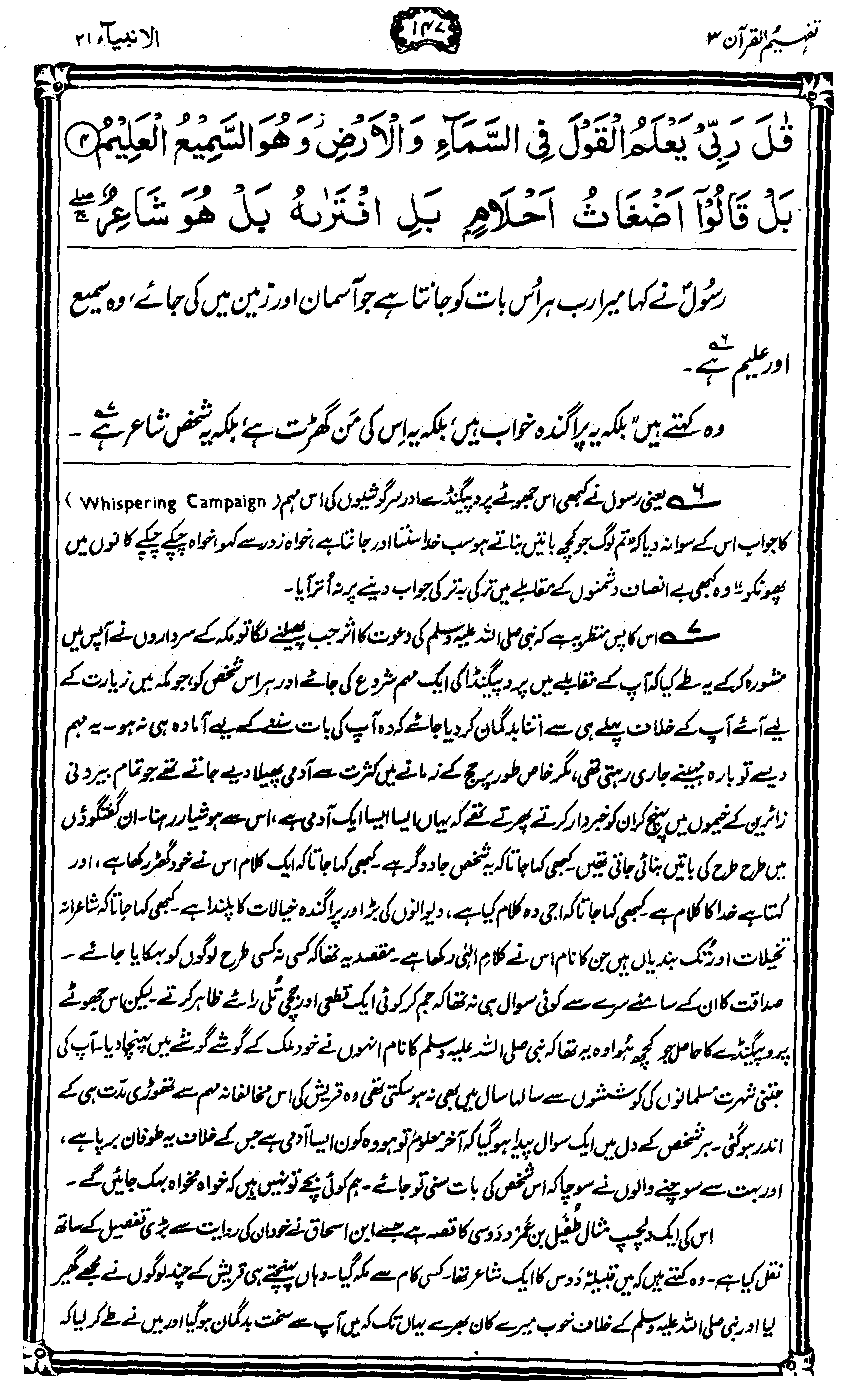 تفہیم القرآن ۳
۱۴۷
الانبیاء ۲۱
قٰلَ رَبِّیۡ یَعۡلَمُ الۡقَوۡلَ فِی السَّمَآءِ وَ الۡاَرۡضِ ۫ وَ هُوَ السَّمِیۡعُ الۡعَلِیۡمُ ﴿۴﴾
بَلۡ قَالُوۡۤا اَضۡغَاثُ اَحۡلَامٍۭ بَلِ افۡتَرٰىهُ بَلۡ هُوَ شَاعِرٌ ۚۖ
رسُولؐ نے کہا میرا رب ہر اُس بات کو جانتا ہے جو آسمان اور زمین میں کی جائے، وہ سمیع
اور علیم ہے۶۔
وہ کہتے ہیں”بلکہ یہ پراگندہ خواب ہیں، بلکہ یہ اِس کی مَن گھڑت ہے، بلکہ یہ شخص شاعر ہے۷۔
۶ یعنی رسول نے کبھی اس جھوٹے پروپیگنڈے اور سرگوشیوں کی اس مہم( Whispering Campaign )
کا جواب اس کے سوا نہ دیا کہ ”تم لوگ جو کچھ باتیں بناتے ہو سب خدا سنتا اور جانتا ہے، خواہ زور سے کہو، خواہ چپکے چپکے کانوں میں
پھونکو۔“ وہ کبھی بے انصاف دشمنوں کے مقابلے میں ترکی بہ ترکی جواب دینے پر نہ اُتر آیا۔
۷ اس کا پس منظر یہ ہے کہ نبی صلی اللہ علیہ وسلم کی دعوت کا اثر جب پھیلنے لگا تو مکہ کے سرداروں نے آپس میں
مشورہ کر کے یہ طے کیا کہ آپ کے مقابلے میں پروپیگنڈا کی ایک مہم شروع کی جائے اور ہر اس شخص کو، جو مکہ میں زیارت کے
لیے آئے آپ کے خلاف پہلے ہی سے اتنا بدگمان کر دیا جائے کہ وہ آپ کی بات سننے کے لیے آمادہ ہی نہ ہو۔ یہ مہم
ویسے تو بارہ مہینے جاری رہتی تھی، مگر خاص طور پر حج کے زمانے میں کثرت سے آدمی پھیلا دیے جاتے تھے جو تمام بیرونی
زائرین کے خیموں میں پہنچ کر ان کو خبردار کرتے پھرتے تھے کہ یہاں ایسا ایسا ایک آدمی ہے، اس سے ہوشیار رہنا۔ ان گفتگوؤں
میں طرح طرح کی باتیں بنائی جاتی تھیں۔ کبھی کہا جاتا کہ یہ شخص جادوگر ہے۔ کبھی کہا جاتا کہ ایک کلام اس نے خود گھڑ رکھا ہے، اور
کہتا ہے خدا کا کلام ہے۔ کبھی کہا جاتا کہ اجی وہ کلام کیا ہے، دیوانوں کی بڑ اور پراگندہ خیالات کا پلندا ہے۔ کبھی کہا جاتا کہ شاعرانہ
تخیلات اور تُک بندیاں ہیں جن کا نام اس نے کلامِ الٰہی رکھا ہے۔ مقصد یہ تھا کہ کسی نہ کسی طرح لوگوں کو بہکایا جائے۔
صداقت کا ان کے سامنے سرے سے کوئی سوال ہی نہ تھا کہ جم کر کوئی ایک قطعی اور جچی تُلی رائے ظاہر کرتے۔ لیکن اس جھوٹے
پروپیگنڈے کا حاصل جو کچھ ہُوا وہ یہ تھا کہ نبی صلی اللہ علیہ وسلم کا نام انہوں نے خود ملک کے گوشے گوشے میں پہنچا دیا۔ آپ کی
جتنی شہرت مسلمانوں کی کوششوں سے سالہا سال میں بھی نہ ہو سکتی تھی وہ قریش کی اس مخالفانہ مہم سے تھوڑی مدّت ہی کے
اندر ہوگئی۔ ہر شخص کے دل میں ایک سوال پیدا ہوگیا کہ آخر معلوم تو ہو وہ کون ایسا آدمی ہے جس کے خلاف یہ طوفان برپا ہے،
اور بہت سے سوچنے والوں نے سوچا کہ اس شخص کی بات سنی تو جائے۔ ہم کوئی بچے تو نہیں ہیں کہ خواہ مخواہ بہک جائیں گے۔
اس کی ایک دلچسپ مثال طُفَیل بن عَمرو دَوسی کا قصہ ہے جسے ابن اسحاق نے خود ان کی روایت سے بڑی تفصیل کے ساتھ
نقل کیا ہے۔ وہ کہتے ہیں کہ میں قبیلۂ دَوس کا ایک شاعر تھا۔ کسی کام سے مکہ گیا۔ وہاں پہنچتے ہی قریش کے چند لوگوں نے مجھے گھیر
لیا اور نبی صلی اللہ علیہ وسلم کے خلاف خوب میرے کان بھرے یہاں تک کہ میں آپ سے سخت بدگمان ہوگیا اور میں نے طے کر لیا کہ